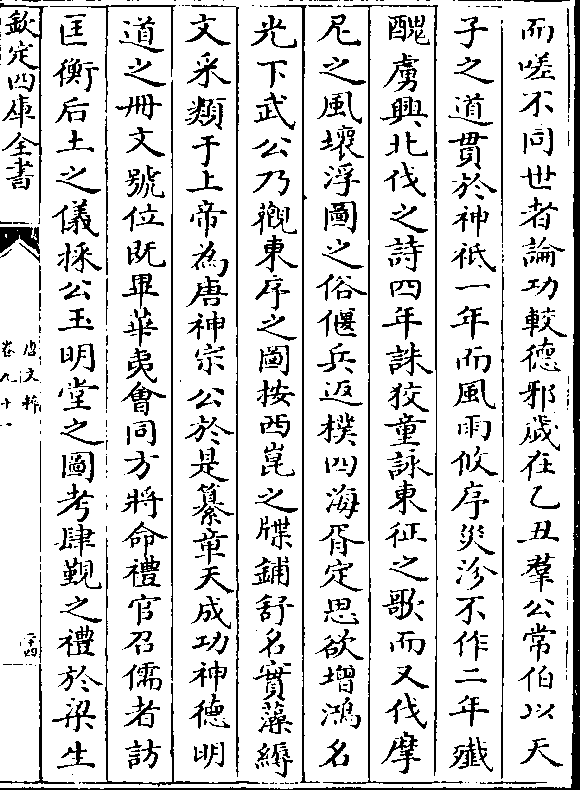 而嗟不同世者論功較德邪歲在乙丑羣公常伯以天
子之道貫於神祇一年而風雨攸序災沴不作二年殲
醜虜興北伐之詩四年誅狡童詠東征之歌而又伐摩
尼之風壞浮圖之俗偃兵返樸四海胥定思欲增鴻名
光下武公乃觀東序之圖按西崑之牒鋪舒名實藻縟
文采類于上帝為唐神宗公於是纂章天成功神德明
道之冊文號位既畢華夷會同方將命禮官召儒者訪
匡衡后土之儀採公玉明堂之圖考肆覲之禮於梁生
欽定四庫全書
唐文粹
卷九十一
二十四